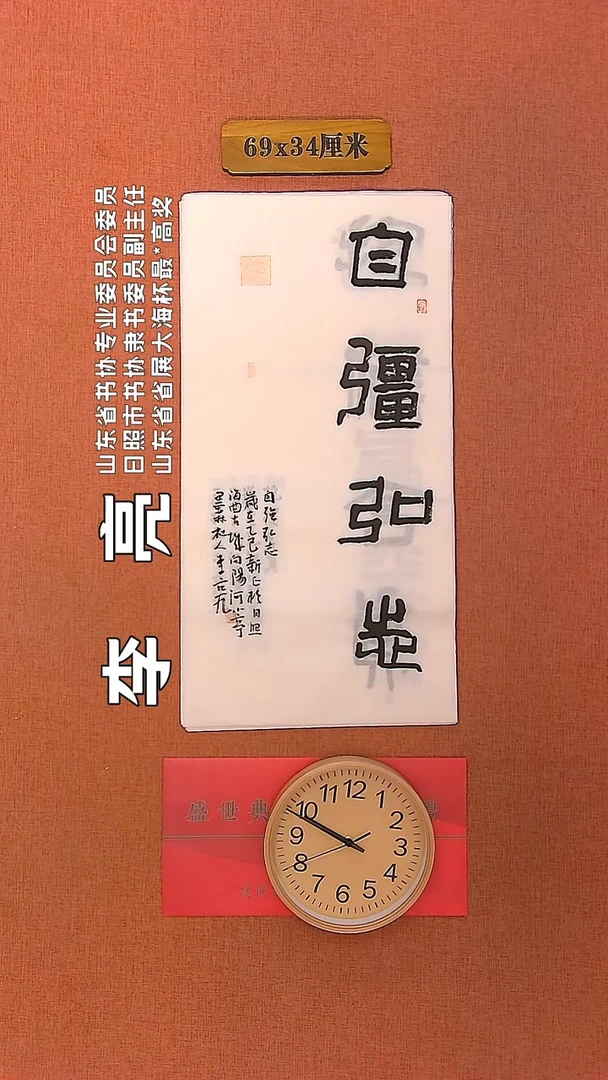 69x34厘米
李 亮
山东省书协专业委员会委员
日照市书协隶书委员副主任
山东省省展大海杯最*高奖
自彊弘志
自强弘志
歲在乙巳新正於日照
古城向陽河
盛世典
12
1
2
3
4
5
6
7
8
9
10
11